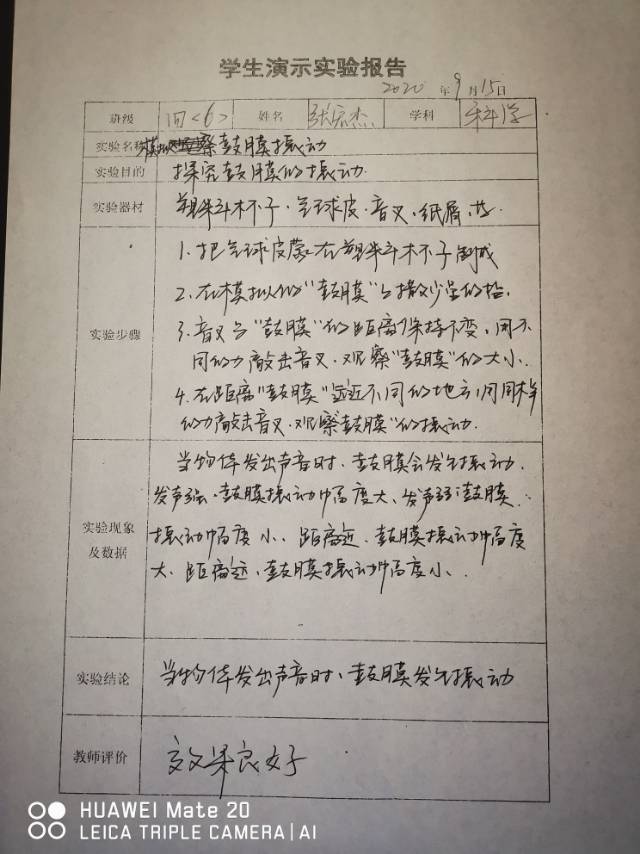 学生演示实验报告
2020 年 9 月 15 日
班级 四<6> 姓名 张宏杰 学科 科学
实验名称 察鼓膜振动
实验目的 探究鼓膜的振动.
实验器材 塑料杯子.气球皮.音叉.纸屑.
1.把气球皮蒙在塑料杯子制成
2.在模拟的"鼓膜"上撒少量的
实验步骤 3.音叉与"鼓膜"的距离保持不变,用不
同的力敲击音叉.观察"鼓膜"的大小.
4.在距离"鼓膜"远近不同的地方,用同样
的力敲击音叉.观察鼓膜"的振动.
当物体发出声音时.鼓膜会发生振动.
发声强.鼓膜振动幅度大、发声弱鼓膜
实验现象及数据 振动幅度小、距离近.鼓膜振动幅度
大、距离远.鼓膜振动幅度小.
实验结论 当物体发出声音时、鼓膜发生振动
教师评价 效果良好
HUAWEI Mate 20
LEICA TRIPLE CAMERA | AI